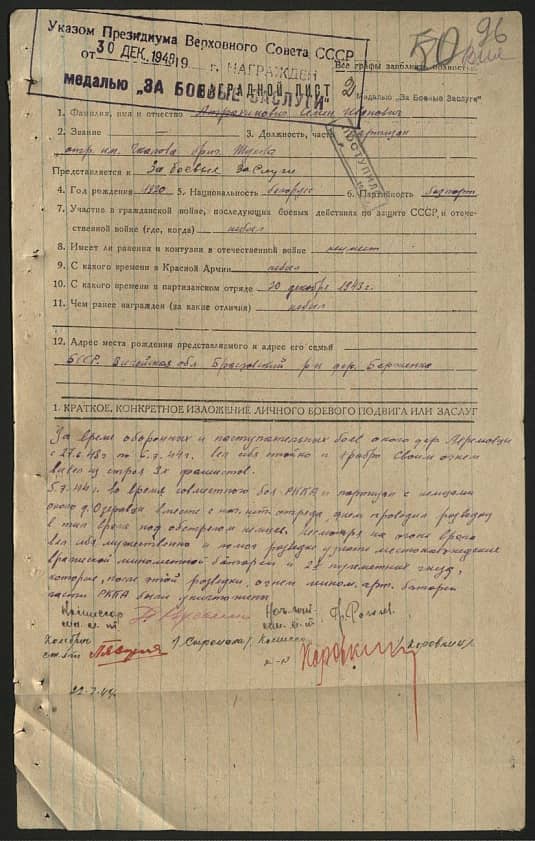 96
Указом Президиума Верховного Совета СССР
от 30 ДЕК. 1948 г. НАГРАЖДЕН
медалью „ЗА БОЕВЫЕ ЗАСЛУГИ"
Все графы заполнять полностью
НАГРАДНОЙ ЛИСТ 2 медалью „За Боевые Заслуги"
1. Фамилия, имя и отчество Семен Иванович
2. Звание — 3. Должность, часть партизан
отр. им. Чкалова бриг.
ПОСТУПИЛ
Представляется к За боевые заслуги
4. Год рождения 1920 5. Национальность белорус 6. Партийность беспарт
7. Участие в гражданской войне, последующих боевых действиях по защите СССР, и отече-
ственной войне (где, когда) небыл
8. Имеет ли ранения и контузии в отечественной войне неимеет
9. С какого времени в Красной Армии небыл
10. С какого времени в партизанском отряде 20 декабря 1943 г.
11. Чем ранее награжден (за какие отличия) небыл
12. Адрес места рождения представляемого и адрес его семьи
БССР. обл р-н дер.
1. КРАТКОЕ, КОНКРЕТНОЕ ИЗЛОЖЕНИЕ ЛИЧНОГО БОЕВОГО ПОДВИГА ИЛИ ЗАСЛУГ
За время оборонных и наступательных боев около дер.
с по 5.7.44г. вел себя стойко и храбро своим огнем
вывел из строя 3х фашистов.
5.7.44г. во время совместного боя РККА и партизан с немцами
около д. вместе с отряда, днем проводил разведку
в тыл врага под обстрелом немцев, несмотря на огонь врага
вел себя мужественно и помог разведке узнать местонахождения
вражеской минометной батареи и 2х пулеметных гнезд,
которые, после этой разведки, огнем мином. арт. батареи
части РККА были уничтожены
Комиссар
Комбриг Комиссар /Коровкин/
22.7.44г.